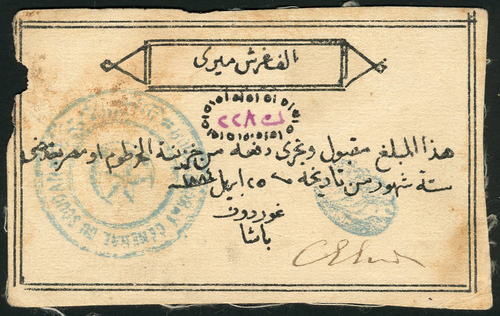 الف غرش ميرى
هذا المبلغ مقبول وتجرى دفعه من خزينة الخرطوم او مصر بعد مضى
ستة شهور من تاريخه ٢٥ ابريل ١٨٨٤
غوردون
باشا
GENERAL DU SOUDAN